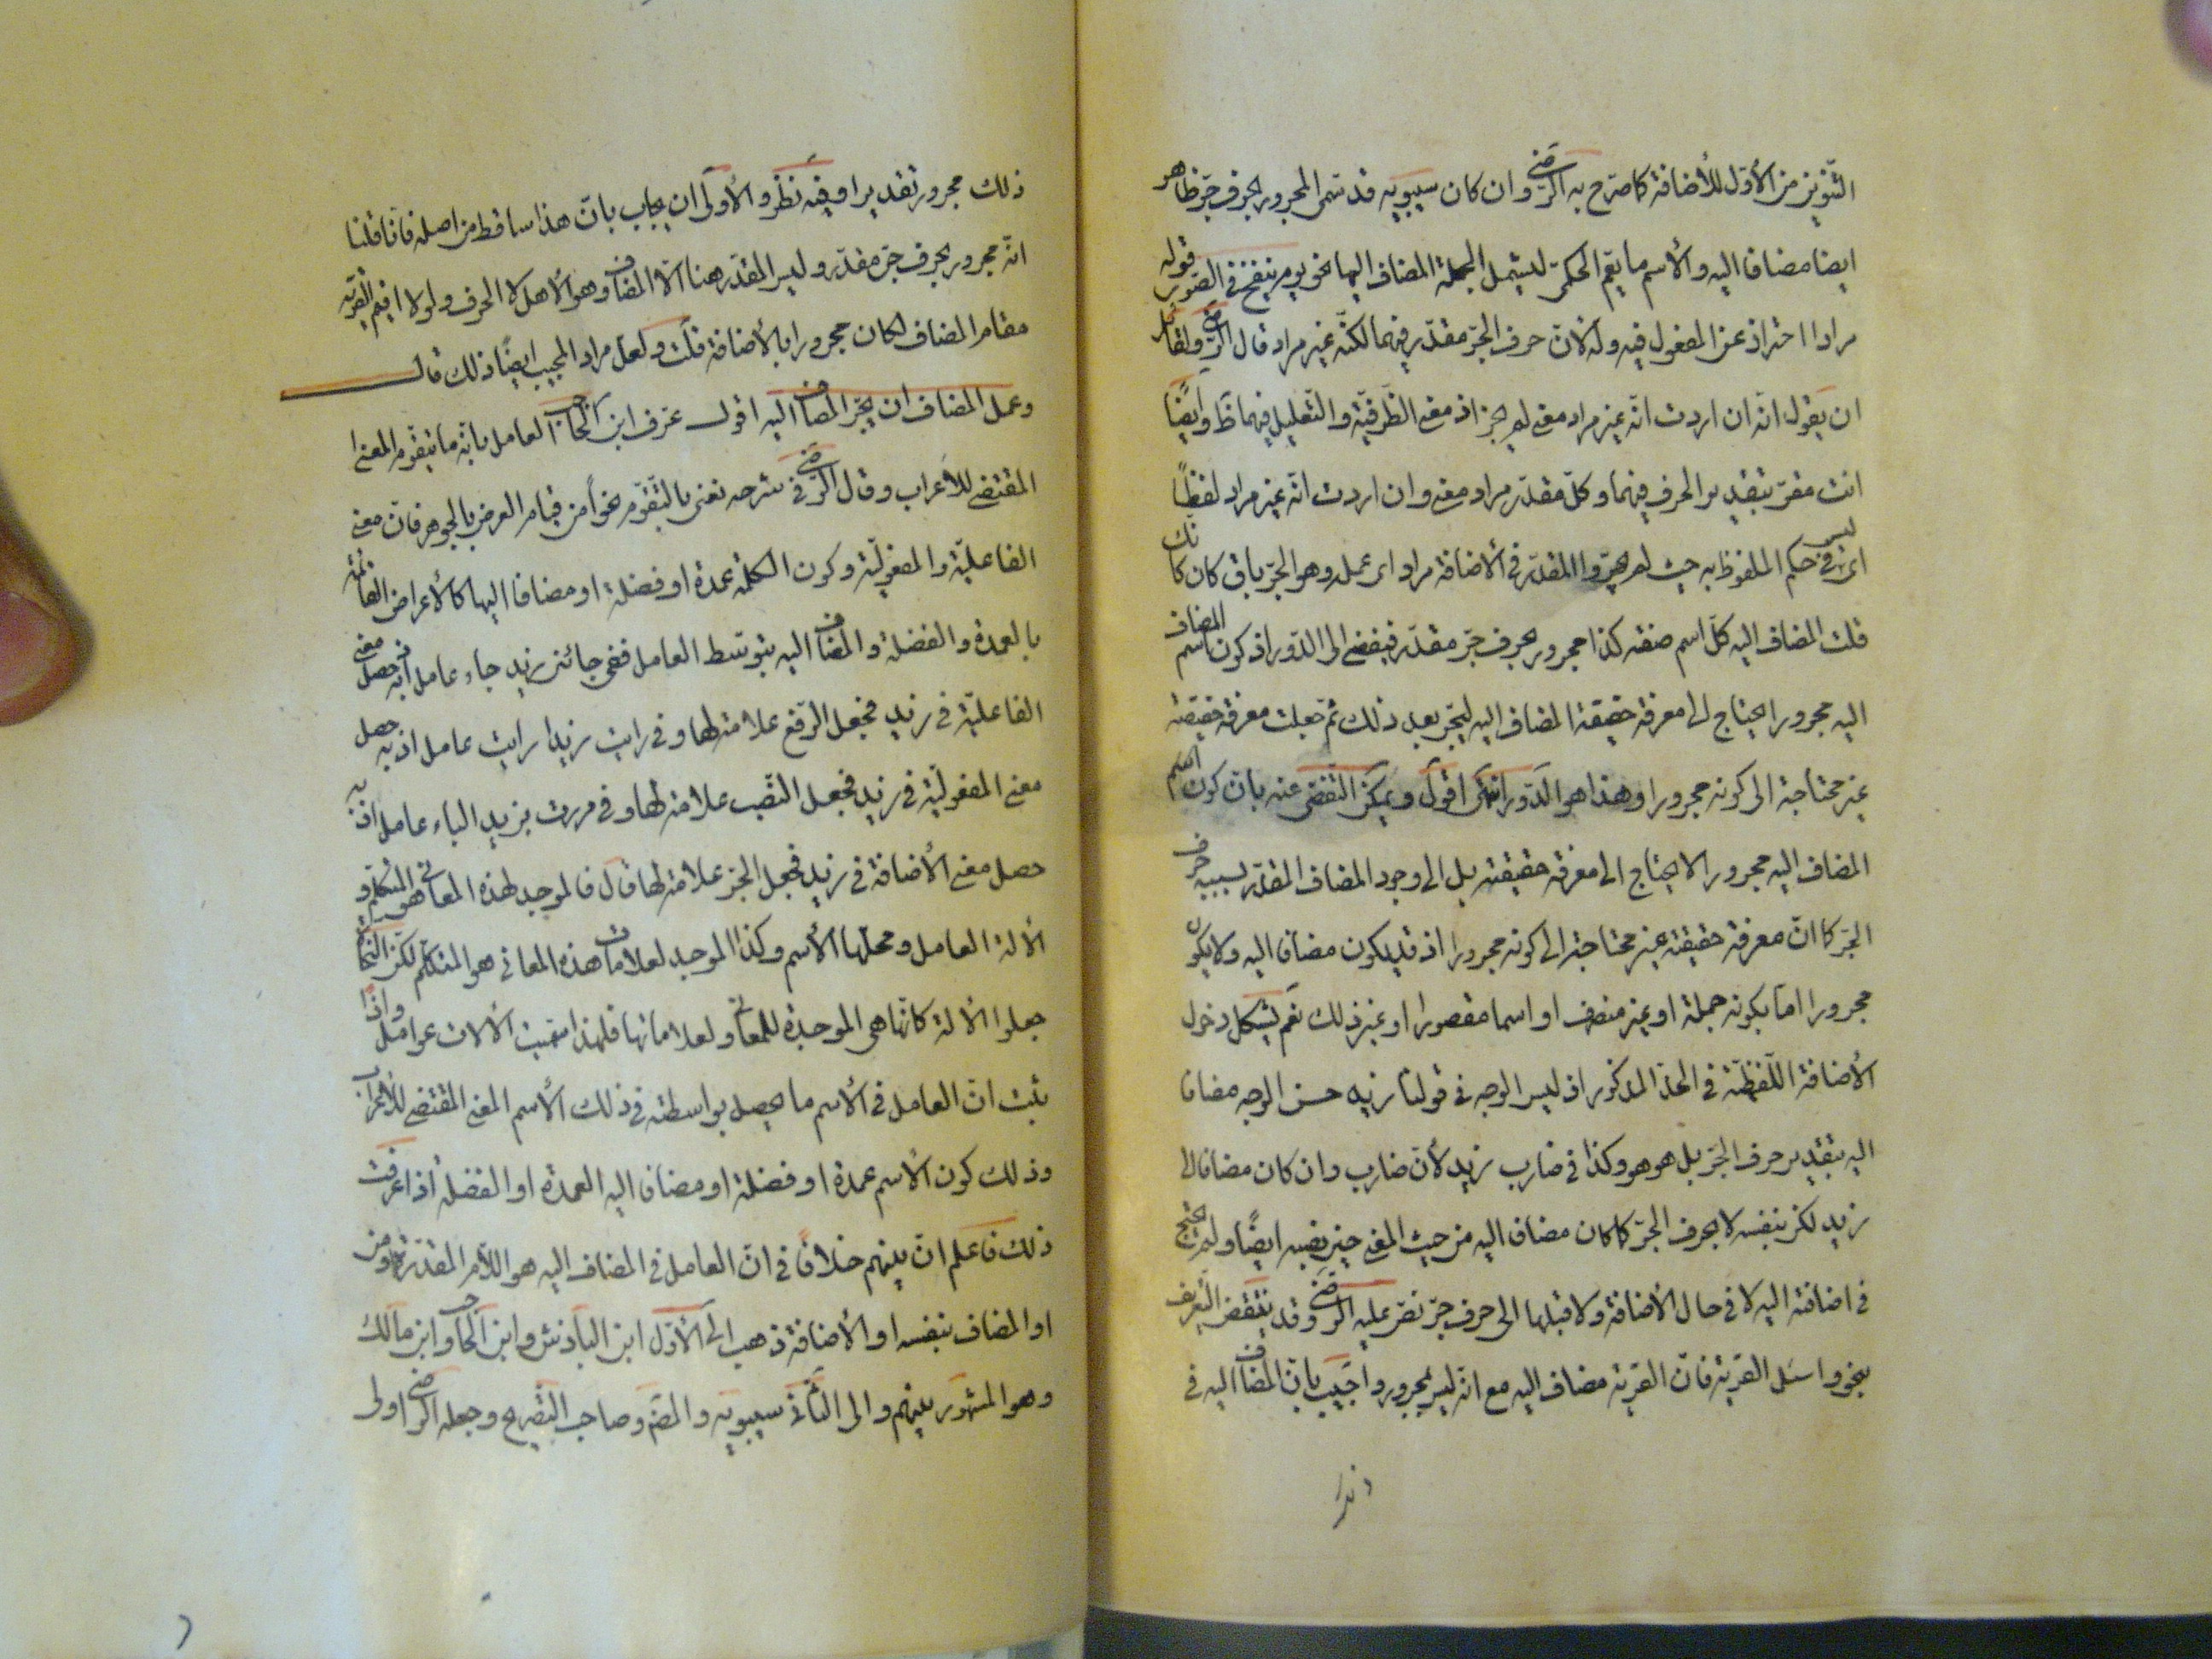 التنوين من الأول للأضافة كما صرح به الرضى وان كان سيبويه قد سمى المجرور بحرف جر ظاهر
ايضا مضافا اليه والأسم ما يعم الحكمى ليشمل الجملة المضاف اليها نحو يوم ينفخ فى الصور قوله
مرادا احتراز عن المفعول فيه وله لأن حرف الجر مقدر فيهما لكنه غير مراد قال الرضى ولقائل
ان يقول انه ان اردت انه غير مراد معنى لم يجز اذ معنى الظرفية والتعليل فيهما ظ وايضا
انت مقر بتقدير الحرف فيهما وكل مقدر مراد معنى وان اردت انه غير مراد لفظا
اى ليس فى حكم الملفوظ به حيث لم يجروا المقدر فى الأضافة مراد اى عمله وهو الجر باق كان كانك
قلت المضاف اليه كل اسم صفته كذا مجرور بحرف جر مقدر فيفضى الى الدور اذ كون اسم المضاف
اليه مجرورا يحتاج الى معرفة حقيقة المضاف اليه ليجر بعد ذلك ثم جعلت معرفة حقيقته
غير محتاجة الى كونه مجرورا وهذا هو الدور انتهى اقول ويمكن التفصى عنه بان كون اسم
المضاف اليه مجرورا لا يحتاج الى معرفة حقيقته بل الى وجود المضاف المقدر بسببه حرف
الجر كما ان معرفة حقيقته غير محتاجة الى كونه مجرورا اذ قد يكون مضافا اليه ولا يكون
مجرورا اما بكونه جملة او غير منصرف او اسما مقصورا او غير ذلك نعم يشكل دخول
الأضافة اللفظية فى الحد المذكور اذ ليس الوجه فى قولنا زيد حسن الوجه مضافا
اليه بتقدير حرف الجر بل هو هو وكذا فى ضارب زيد لأن ضارب وان كان مضافا الى
زيد لكن بنفسه لا بحرف الجر كما كان مضافا اليه من حيث المعنى حين نصبه ايضا ولم يحتج
فى اضافته اليه لا فى حال الأضافة ولا قبلها الى حرف جر نص عليه الرضى وقد ينتقض التعريف
بنحو واسئل القرية فان القرية مضاف اليه مع انه ليس بمجرور واجيب بان المضاف اليه فى
ذلك مجرور تقديرا وفيه نظر والأولى ان يجاب بان هذا ساقط من اصله فانا قلنا
انه مجرور بحرف جر مقدر وليس المقدر هنا الا المضاف وهو الأهل لا الحرف ولولا اقيم القرية
مقام المضاف لكان مجرورا بالأضافة قلت ولعل مراد المجيب ايضا ذلك قال
وعمل المضاف ان يجر المضاف اليه اقول عرف ابن الحاجب العامل بانه ما يتقوم المعنى
المقتضى للأعراب وقال الرضى فى شرحه نعنى بالتقوم نحوا من قيام العرض بالجوهر فان معنى
الفاعلية والمفعولية وكون الكلمة عمدة او فضلة او مضافا اليها كالأعراض القائمة
بالعمدة والفضلة والمضاف اليه بتوسط العامل ففى جائنى زيد جاء عامل اذ به حصل معنى
الفاعلية فى زيد فجعل الرفع علامة لها وفى رايت زيدا رايت عامل اذ به حصل
معنى المفعولية فى زيد فجعل النصب علامة لها وفى مررت بزيد الباء عامل اذ به
حصل معنى الأضافة فى زيد فجعل الجر علامة لها قال فالموجد لهذه المعانى هو المتكلم و
الألة العامل ومحلها الأسم وكذا الموجد لعلامات هذه المعانى هو المتكلم لكن النحاة
جعلوا الألة كانها هى الموجدة للمعانى ولعلاماتها فلهذا سميت الألات عوامل واذا
ثبت ان العامل فى الأسم ما يحصل بواسطته فى ذلك الأسم المعنى المقتضى للأعراب
وذلك كون الأسم عمدة او فضلة او مضافا اليه العمدة او الفضلة اذا عرفت
ذلك فاعلم ان بينهم خلافا فى ان العامل فى المضاف اليه هو اللام المقدرة او من
او المضاف بنفسه او الأضافة ذهب الى الأول ابن الباذش وابن الحاجب وابن مالك
وهو المشهور بينهم والى الثانى سيبويه والمصنف وصاحب التصريح وجعله الرضى اولى